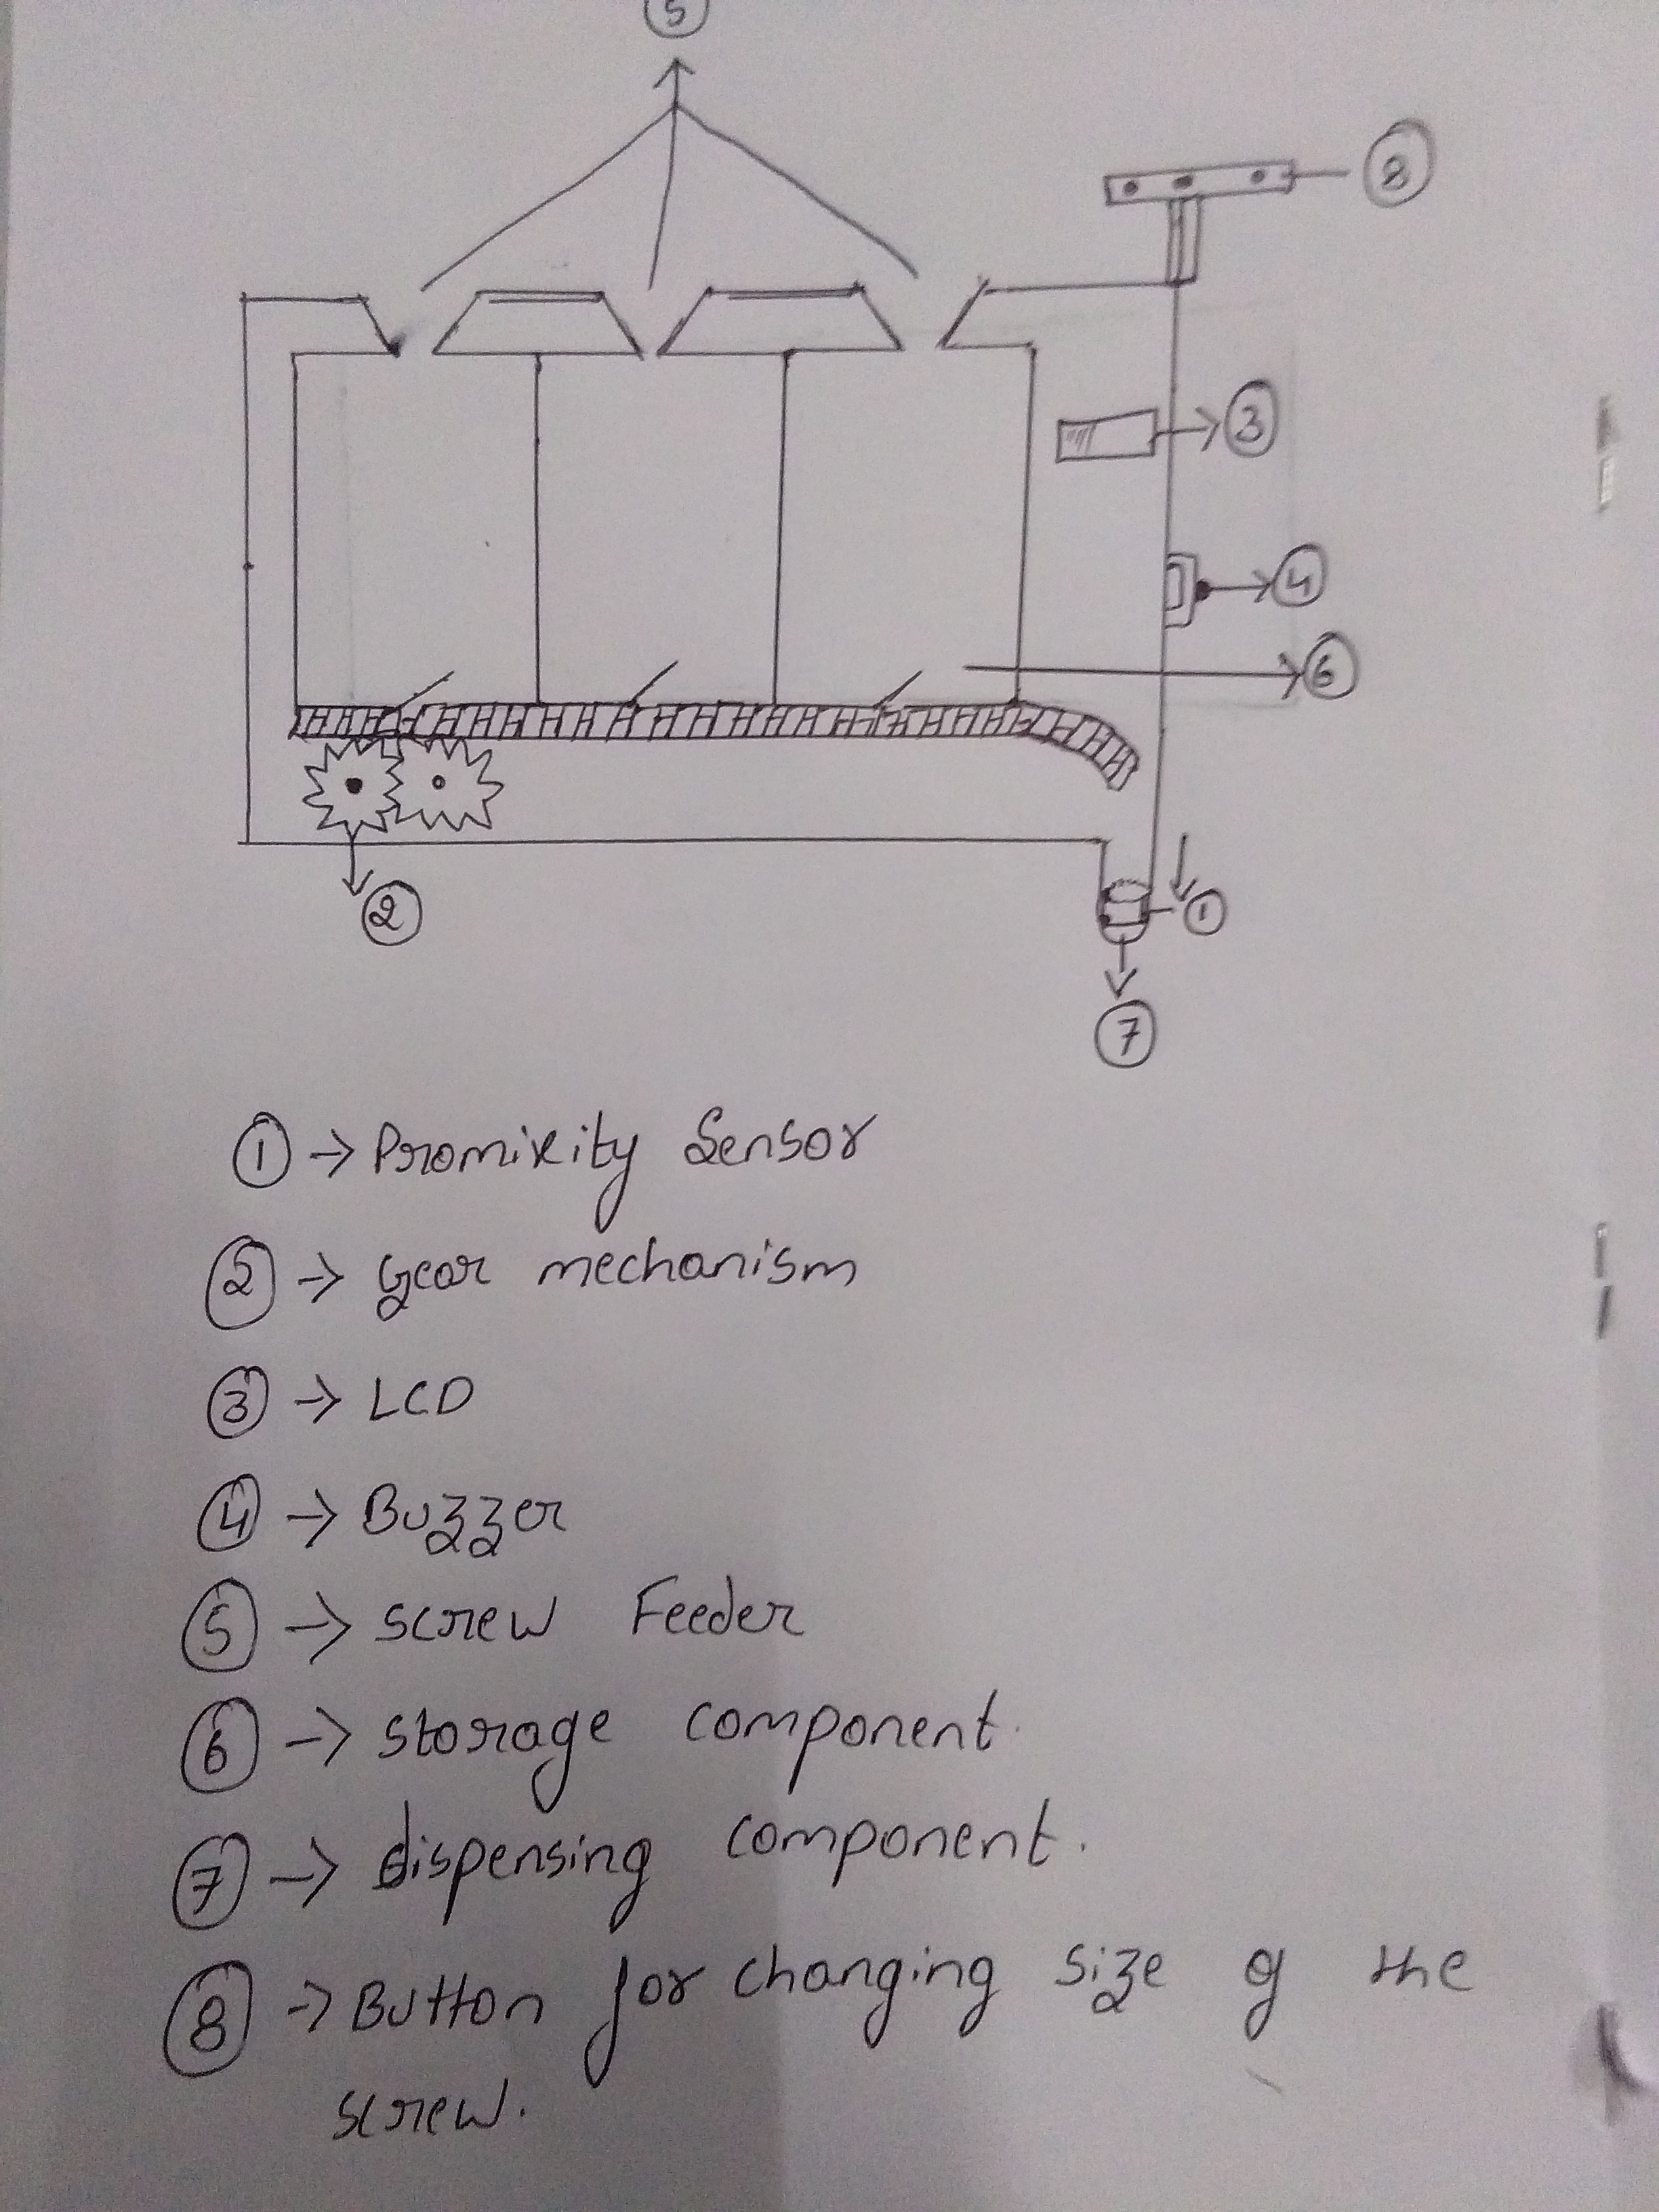 5
8
3
4
6
2
1
7
① → Promixity Sensor
② → Gear mechanism
③ → LCD
④ → Buzzer
⑤ → Screw Feeder
⑥ → storage component.
⑦ → dispensing component.
⑧ → Button for changing size of the
screw.